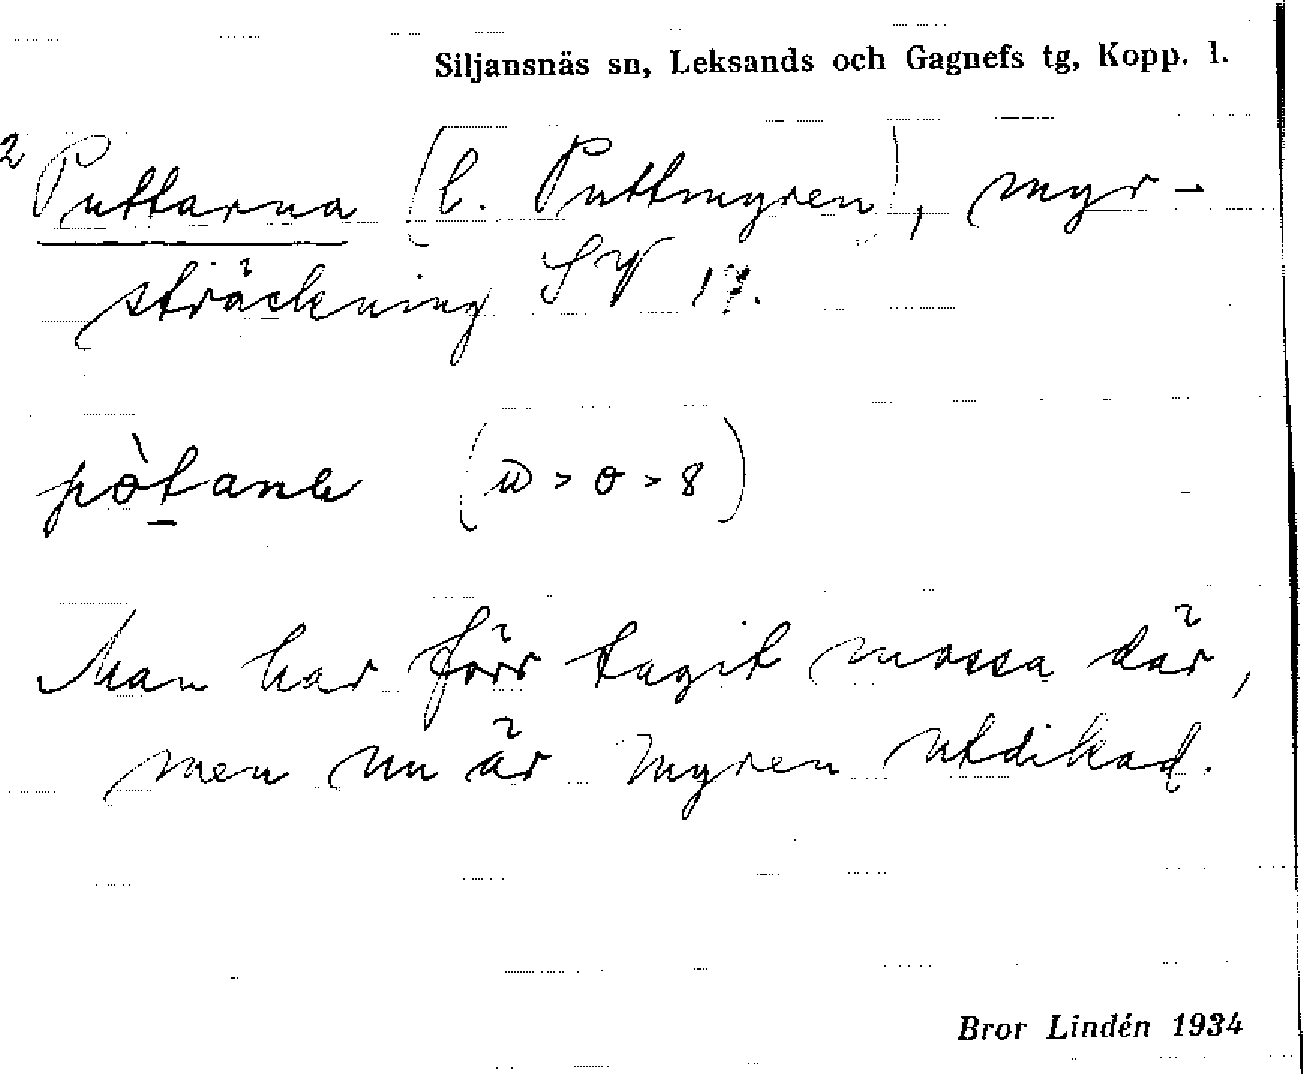 Siljansnäs sn, Leksands och Gagnefs tg, Kopp. l.
2 Puttarna [l. Puttmyren], myr-
sträckning SV 17.
pòtanɐ (ω > σ > 8)
Man har förr tagit mossa där,
men nu är myren utdikad.
Bror Lindén 1934